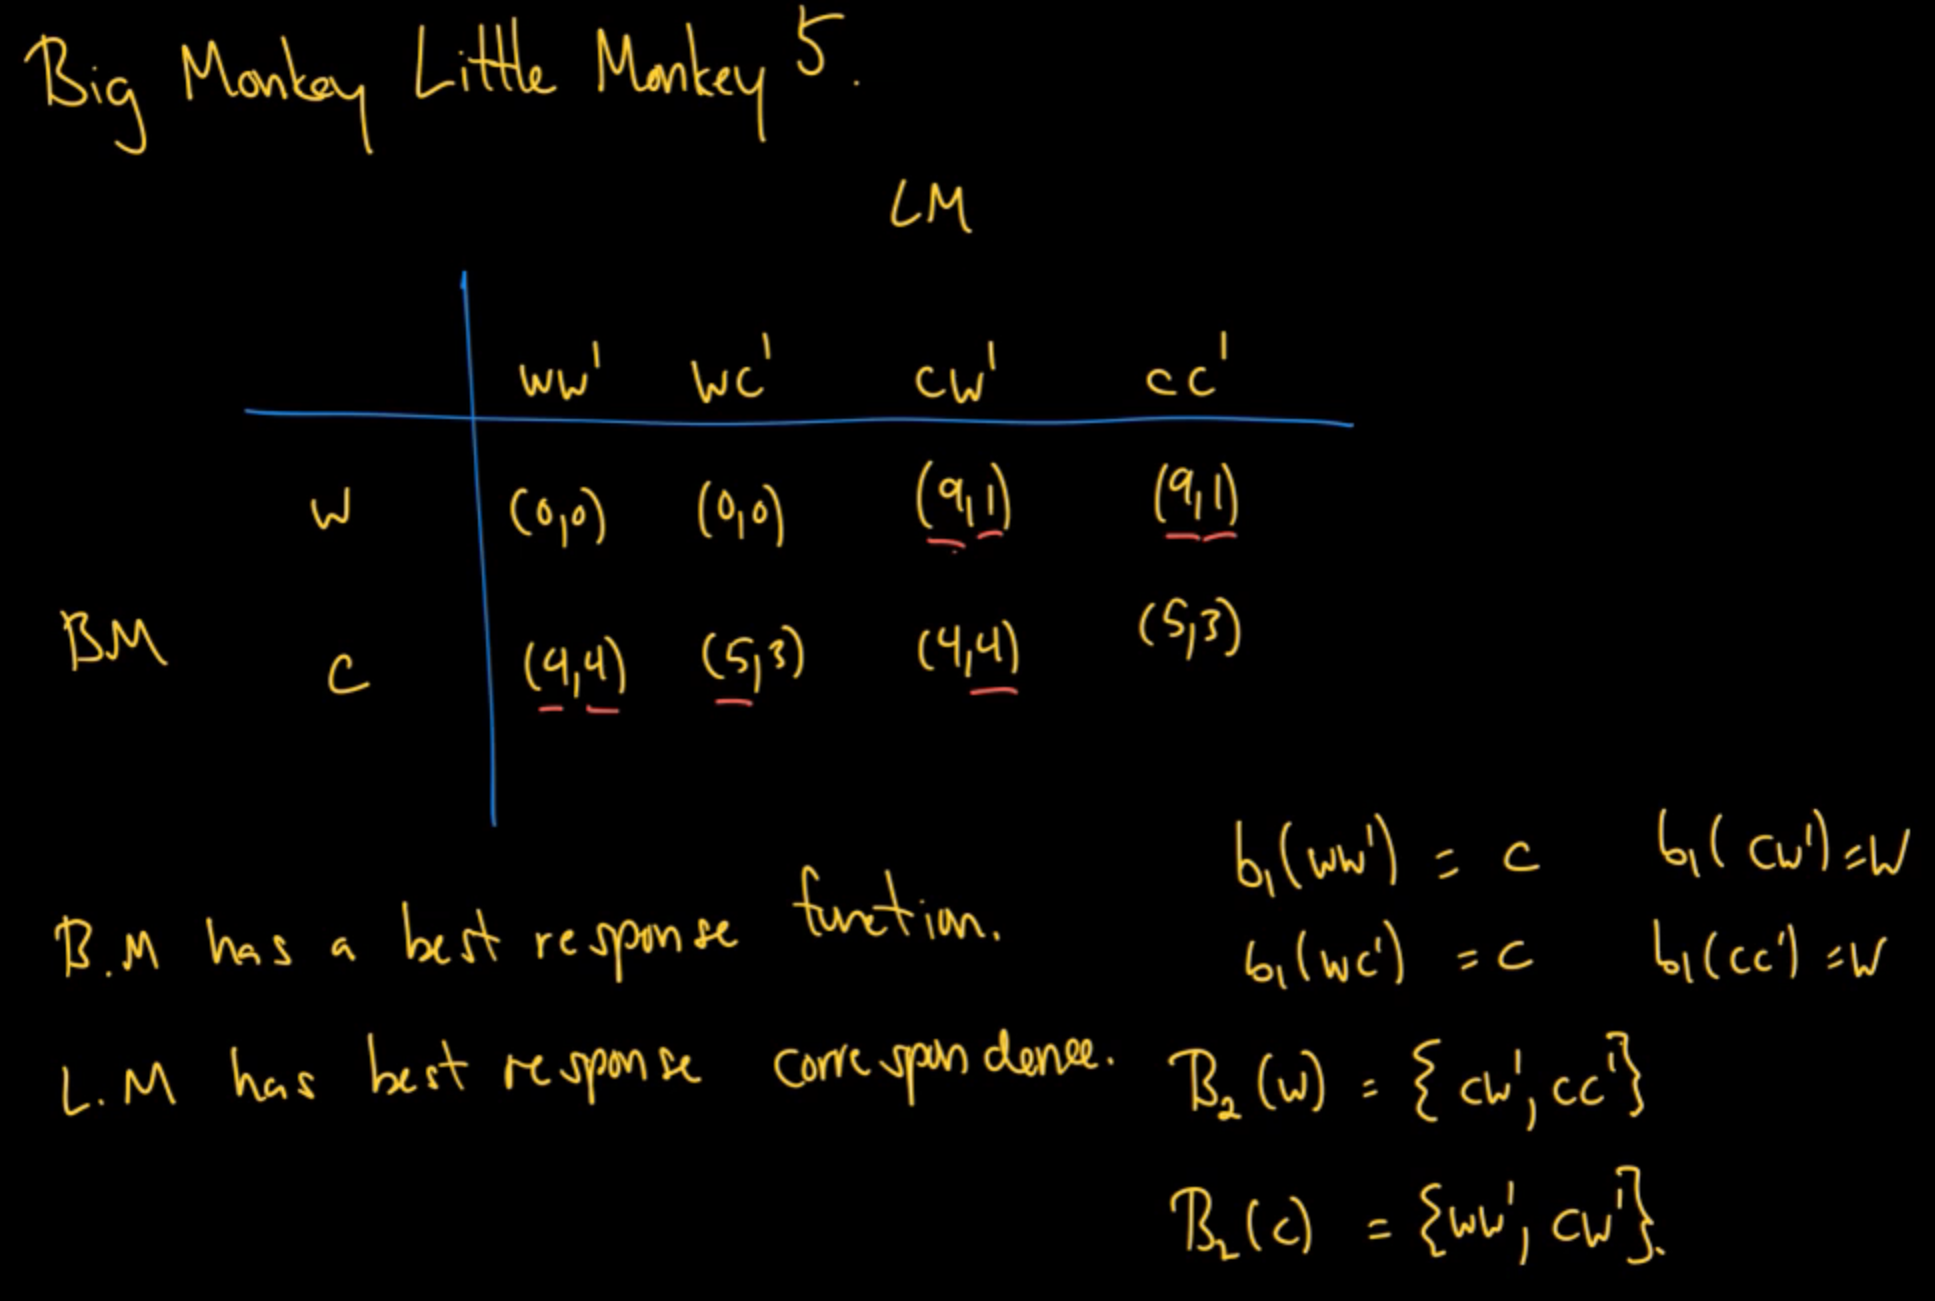 Big Monkey Little Monkey 5.
LM
ww' wc' cw' cc'
w (0,0) (0,0) (9,1) (9,1)
BM
c (4,4) (5,3) (4,4) (5,3)
b₁(ww') = c b₁(cw')=w
B.M has a best response function.
b₁(wc') = c b₁(cc')=w
L.M has best response correspondence.
B₂(w) = {cw', cc'}
B₂(c) = {ww', cw'}.